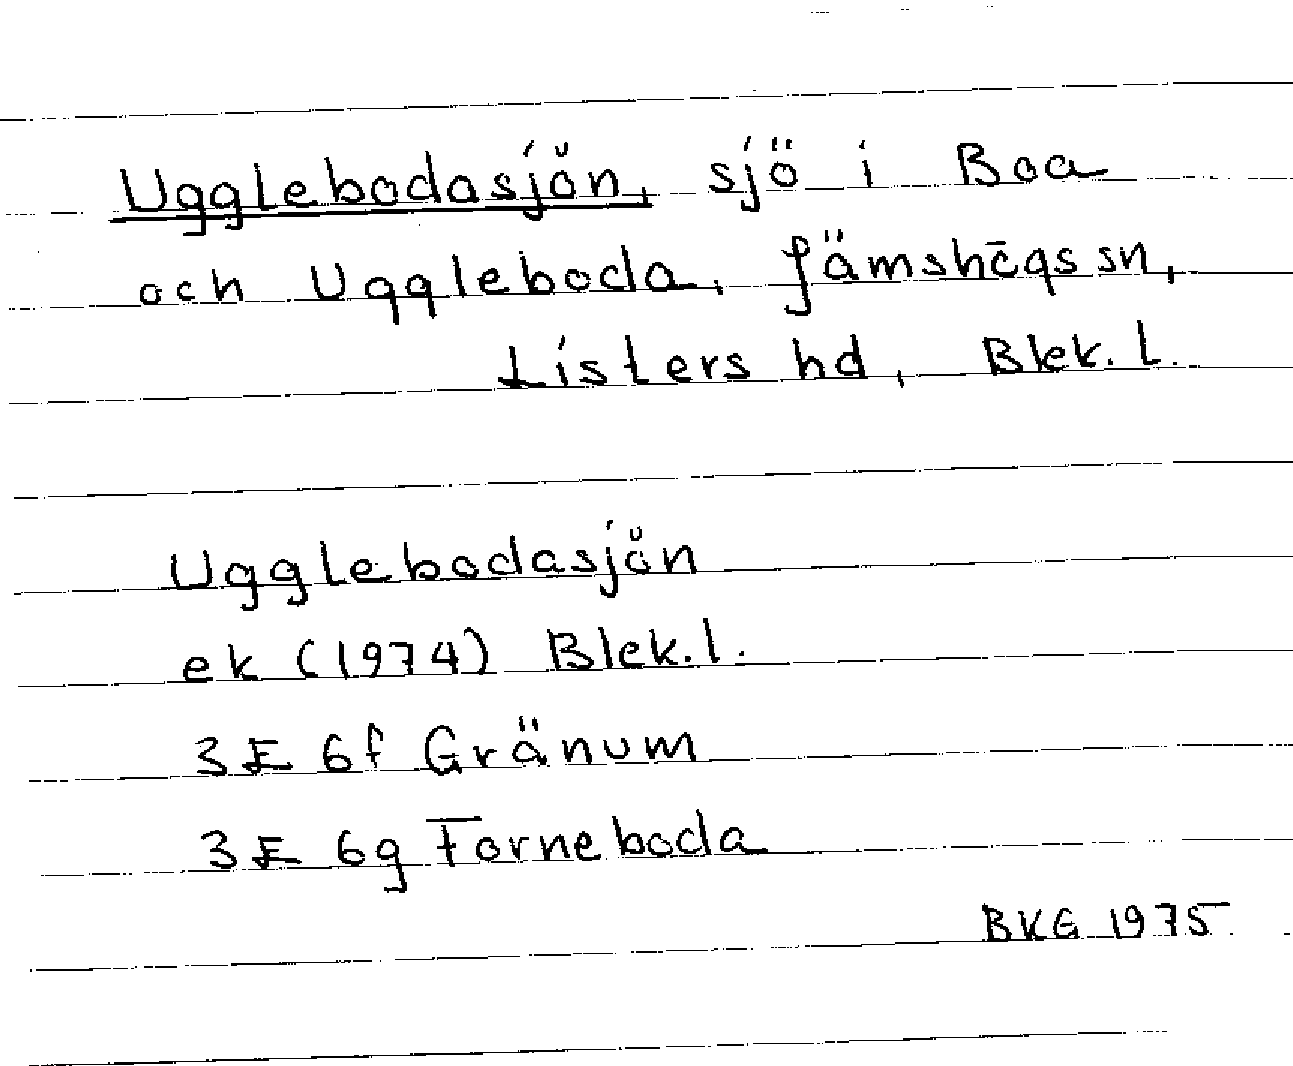 Ugglebodasjön, sjö i Boa
och Uggleboda, Jämshögs sn,
Listers hd, Blek. l.
Ugglebodasjön
ek (1974) Blek. l.
3E 6f Gränum
3E 6g Forneboda
BKG 1975